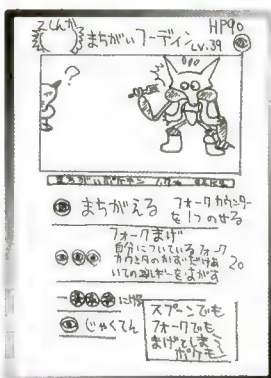 2しんか
まちがいフーディン LV.39 HP90
?
まちがえる フォークカウンター
を1つのせる
フォークまげ
自分についているフォーク
カウンタのかずだけあ
いての エネルギーをまげる 20
にげる
じゃくてん
スプーンでも
フォークでも
まげてしまう
ポケモン